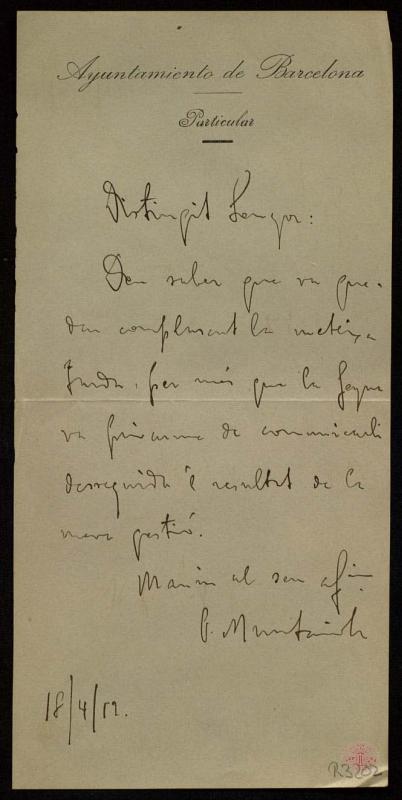 Ayuntamiento de Barcelona
Particular
Distingit Senyor:
Deu saber que va que-
dar complascut la mateixa
tarda, per més que la feyna
va privarme de comunicarli
desseguida el resultat de la
meva gestió.
Mani al seu afm
C. Montoliu
18/4/12.
R.3202